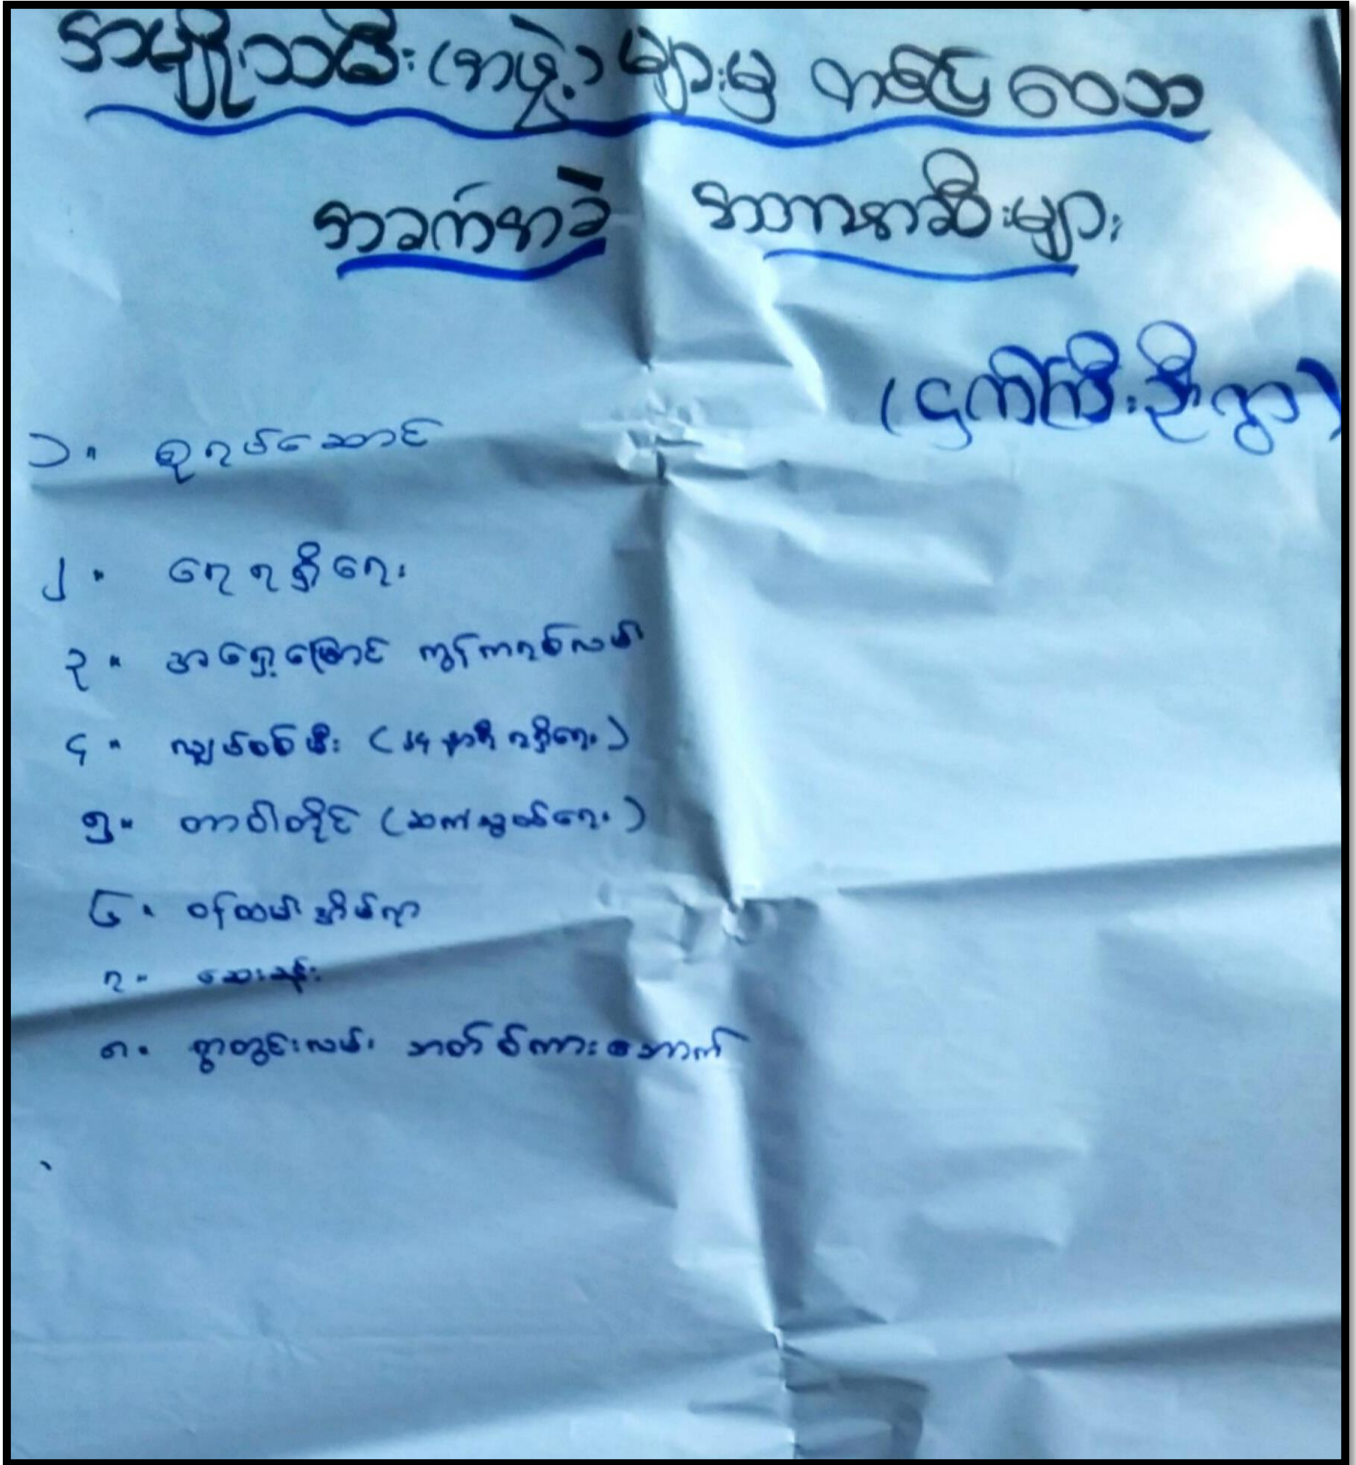 အမျိုးသမီး (အဖွဲ့) များမှ တင်ပြသော
အခက်အခဲ အတားအဆီးများ
(ငှက်ကြီးဦးရွာ)
၁။ စုရပ်ဆောင်
၂။ ရေရရှိရေး
၃။ အရှေ့မြောင် ကွန်ကရစ်လမ်း
၄။ လျှပ်စစ်မီး (၂၄ နာရီရရှိရေး)
၅။ တာဝါတိုင် (ဆက်သွယ်ရေး)
၆။ ဝန်ထမ်းအိမ်ရာ
၇။ ဆေးခန်း
၈။ ရွာတွင်းလမ်း ဘတ်စ်ကားအောက်